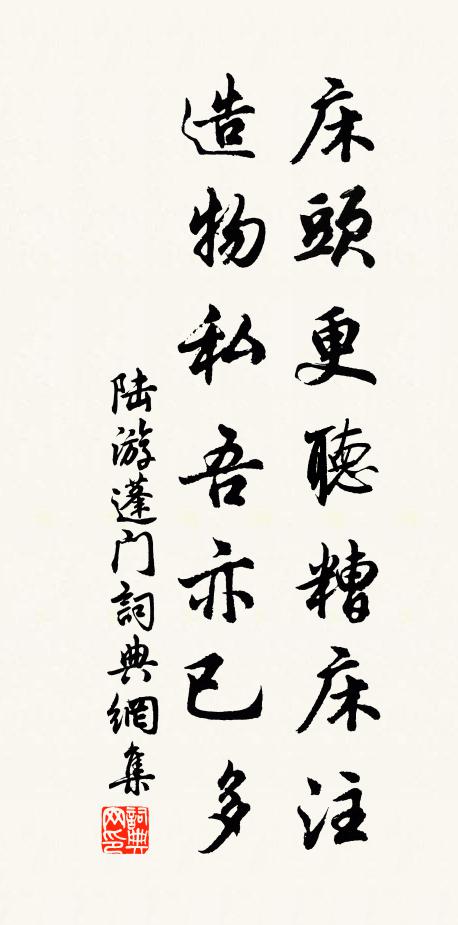 床頭更聽糟床注
造物私吾亦已多
陸游蓬門詞典網集
詞典
网印